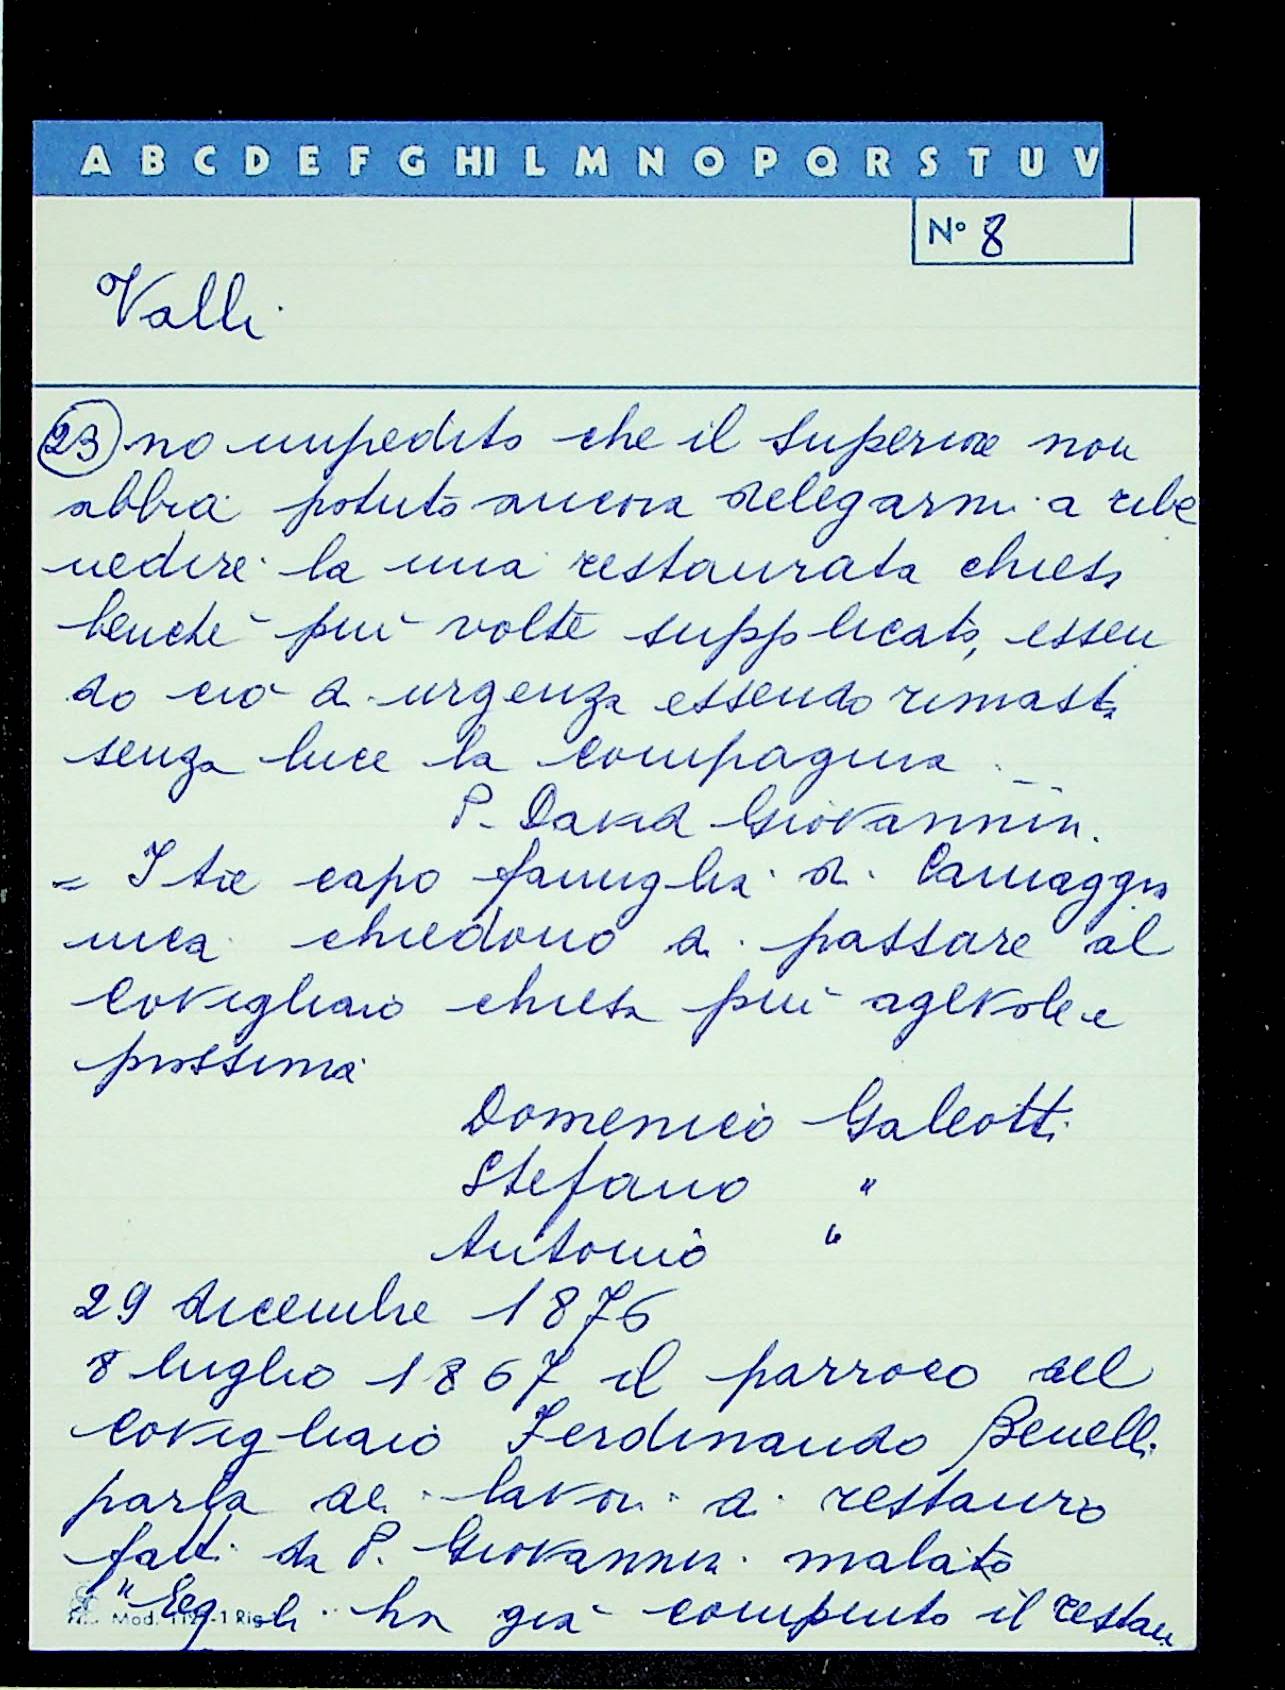 A B C D E F G HI L M N O P Q R S T U V
N° 8
Valli
23 no impedito che il superiore non
abbia potuto ancora delegarmi a ribe
nedire la mia restaurata chiesa
benché più volte supplicato, essen
do ciò di urgenza essendo rimasta
senza luce la compagnia.
P. David Giovannini.
= I tre capo famiglia di Camaggio
nica chiedono di passare al
Covigliaio chiesa più agevole e
prossima
Domenico Galeotti
Stefano "
Antonio "
29 dicembre 1876
8 luglio 1867 il parroco del
Covigliaio Ferdinando Benelli
parla dei lavori di restauro
fatti da P. Giovannini malato
" Egli ha già compiuto il restau
Mod. -1 Ri